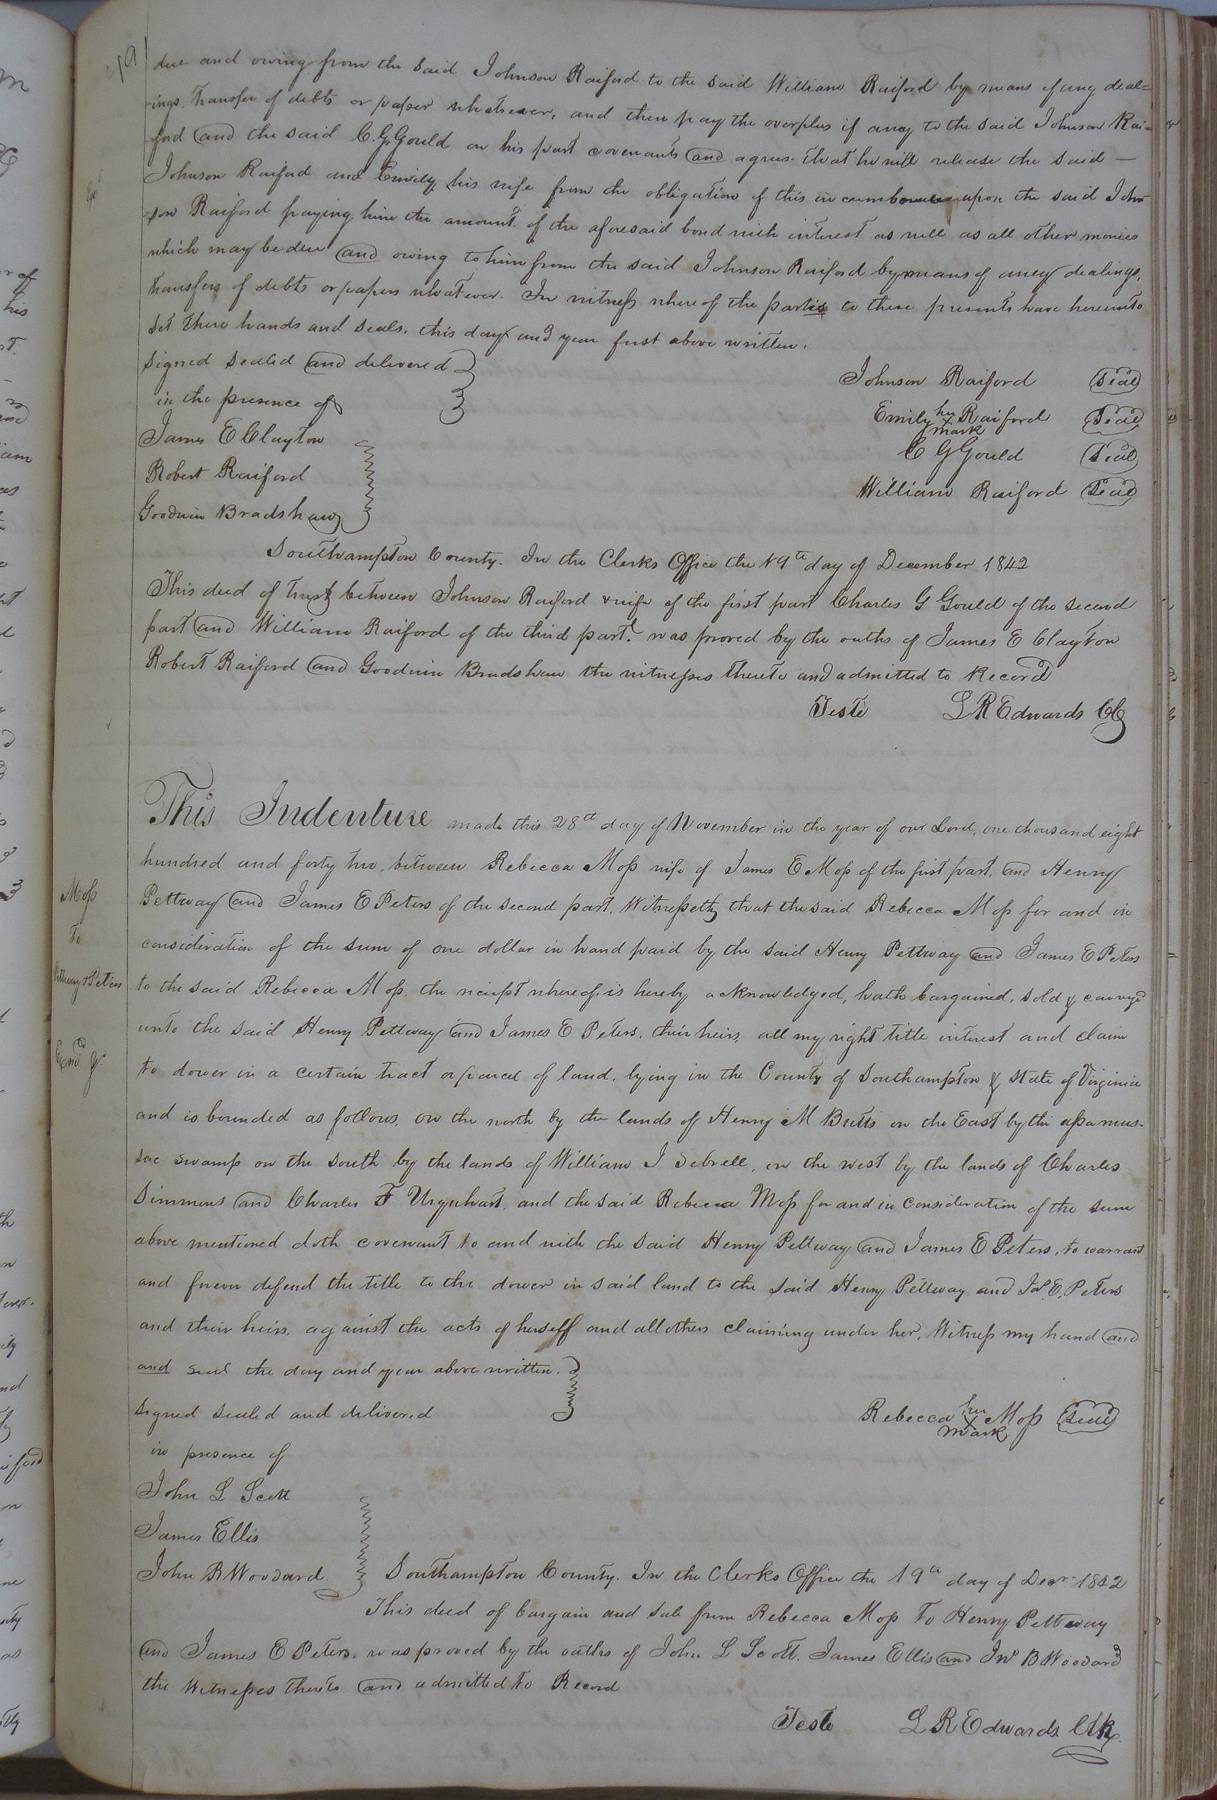 due and owing from the said Johnson Raiford to the said William Raiford by means of any deal=
ings, transfer of debts or paper whatsoever, and then pay the overplus if any to the said Johnson Rai-
ford and the said C. G. Gould on his part covenants and agrees that he will release the said —
Johnson Raiford and Emily his wife from the obligation of this incumbrance upon the said John-
son Raiford paying him the amount of the aforesaid bond with interest as well as all other monies
which may be due and owing to him from the said Johnson Raiford by means of any dealings,
transfers of debts or papers whatever. In witness whereof the parties to these presents have hereunto
set there hands and seals, this day and year first above written.
Signed Sealed and delivered
in the presence of
James E Clayton
Robert Raiford
Goodwin Bradshaw
Johnson Raiford Seal
Emily her mark Raiford Seal
C G Gould Seal
William Raiford Seal
Southampton County. In the Clerks Office the 19th day of December 1842
This deed of trust between Johnson Raiford & wife of the first part Charles G Gould of the second
part and William Raiford of the third part was proved by the oaths of James E Clayton
Robert Raiford and Goodwin Bradshaw the witnesses thereto and admitted to Record
Teste L R Edwards CC
This Indenture made this 28th day of November in the year of our Lord, one thousand eight
hundred and forty two, between Rebecca Moss wife of James E Moss of the first part, and Henry
Moss
To
Pettway & Peters
Pettway and James E Peters of the second part, Witnesseth that the said Rebecca Moss for and in
consideration of the sum of one dollar in hand paid by the said Henry Pettway and James E Peters
to the said Rebecca Moss, the receipt whereof is hereby acknowledged, hath bargained, sold & conveyd
unto the said Henry Pettway and James E Peters, their heirs, all my right title interest and claim
to dower in a certain tract or parcel of land, lying in the County of Southampton & State of Virginia
and is bounded as follows, on the north by the lands of Henry M Butts on the East by the assamus-
soc swamp on the south by the lands of William I Sebrell, on the west by the lands of Charles
Simmons and Charles F Urquhart, and the said Rebecca Moss for and in consideration of the sum
above mentioned doth covenant to and with the said Henry Pettway and James E Peters, to warrant
and forever defend the title to the dower in said land to the said Henry Pettway and Jas. E. Peters
and their heirs, against the acts of herself and all others claiming under her, Witness my hand and
and seal the day and year above written.
Signed sealed and delivered
in presence of
John L Scott
James Ellis
John B Woodard
Rebecca her mark Moss Seal
Southampton County. In the Clerks Office the 19th day of Decr 1842
This deed of bargain and sale from Rebecca Moss To Henry Pettway
and James E Peters, was proved by the oaths of John L Scott, James Ellis and Jno B Woodard
the Witnesses thereto and admitted to Record
Teste L R Edwards Clk